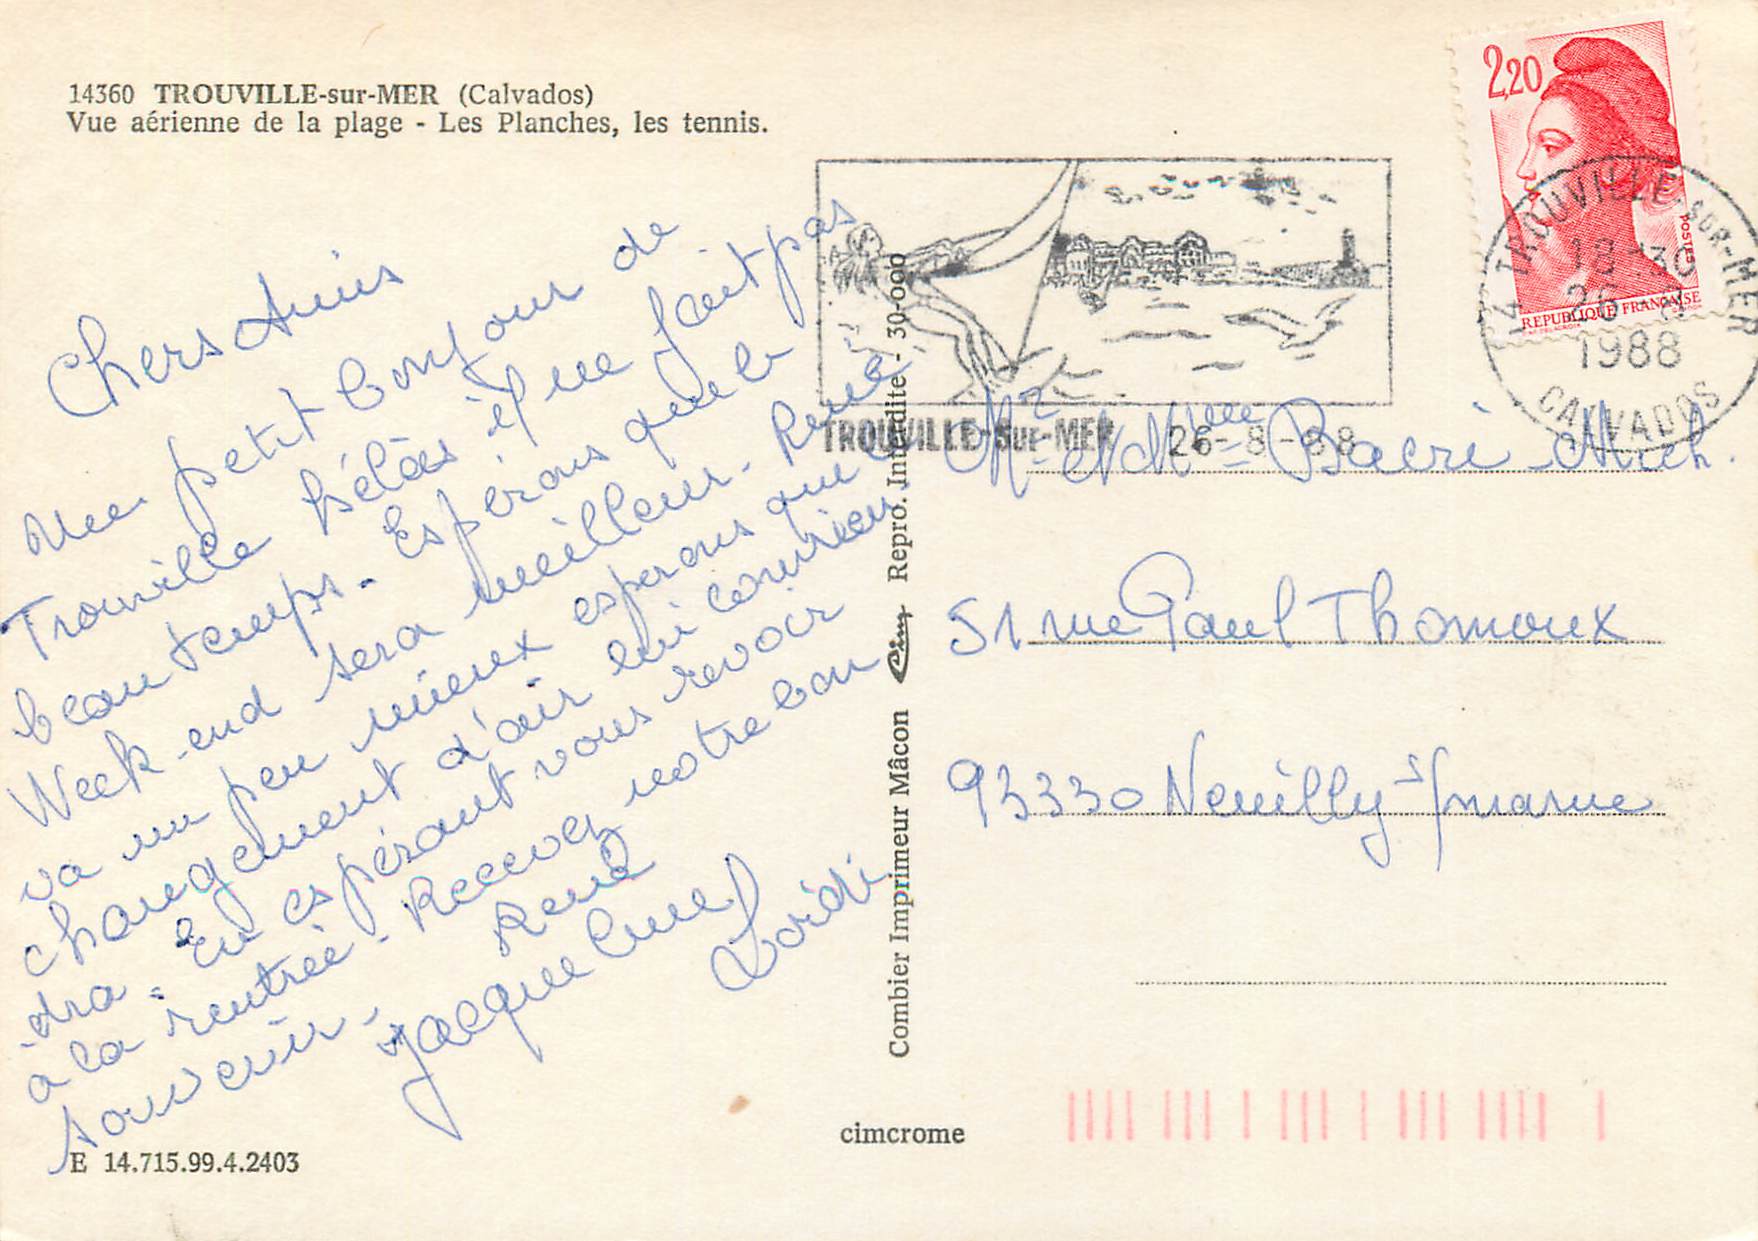 14360 TROUVILLE-sur-MER (Calvados)
Vue aérienne de la plage - Les Planches, les tennis.
Chers Amis
Un petit bonjour de
Trouville hélas il ne fait pas
beau temps. Espérons que le
Week-end sera meilleur. René
va un peu mieux espérons que le
changement d'air lui convien
dra. En espérant vous revoir
à la rentrée. Recevez notre bon
souvenir. René
Jacqueline
E 14.715.99.4.2403
Combier Imprimeur Mâcon Cim Repro. Interdite - 30-000
cimcrome
TROUVILLE-SUR-MER 26-8-88
2,20
POSTES
REPUBLIQUE FRANÇAISE
14 TROUVILLE-SUR-MER
18-30
26-8
1988
CALVADOS
Mr et Mme Bacri Mich.
51 rue Paul Thomoux
93330 Neuilly s/marne